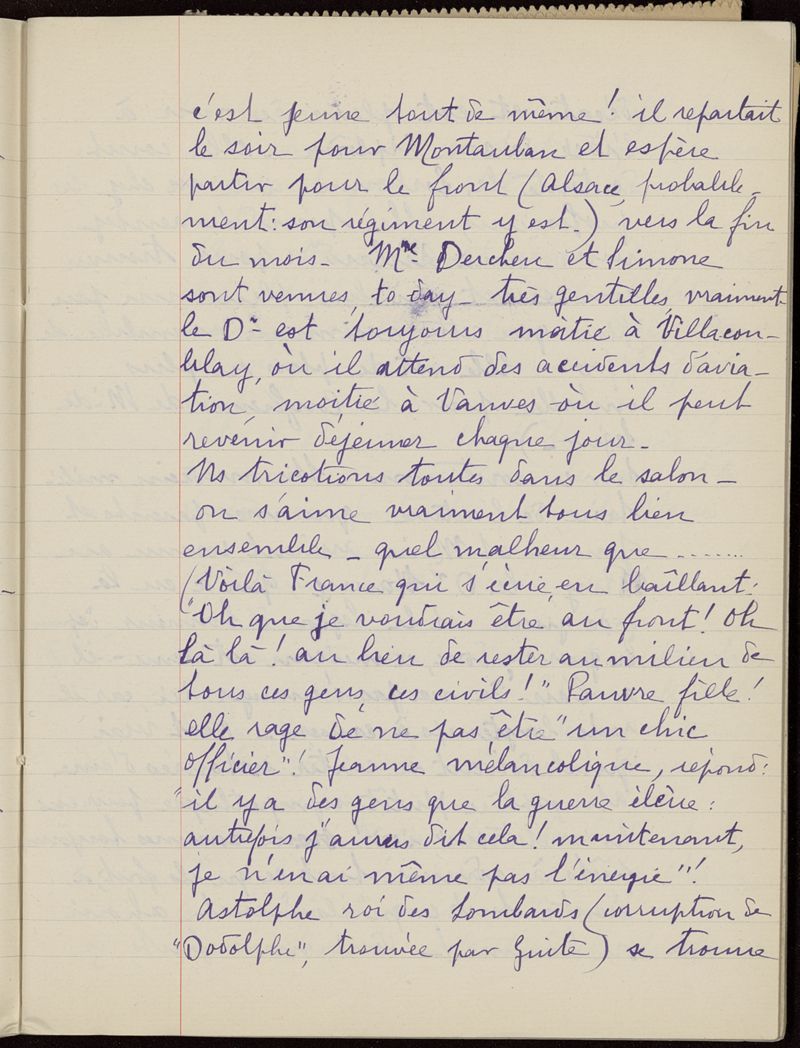 c'est jeune tout de même ! il repartait
le soir pour Montauban et espère
partir pour le front (Alsace, probable-
ment : son régiment y est.) vers la fin
du mois - Mme Dercheu et Simone
sont venues, to day - très gentilles, vraiment -
le Dr est toujours moitié à Villacou-
blay, où il attend des accidents d'avia-
tion, moitié à Vanves où il peut
revenir déjeuner chaque jour -
Ns tricotions toutes dans le salon -
on s'aime vraiment tous bien
ensemble - quel malheur que .......
(Voilà France qui s'écrie, en baîllant :
"Oh que je voudrais être au front ! Oh
là là ! au lieu de rester au milieu de
tous ces gens, ces civils !" Pauvre fille !
elle rage de ne pas être "un chic
officier" ! Jeanne mélancolique, répond :
"il y a des gens que la guerre élève :
autrefois j'aurais dit cela ! maintenant,
je n'en ai même pas l'énergie" !
Astolphe roi des Lombards (corruption de
"Dodolphe", trouvée par Guite) se trouve